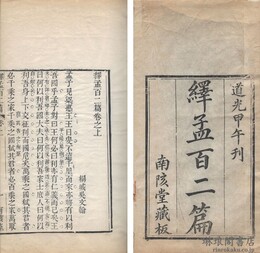 道光甲午刊
繹孟百二篇
南陔堂藏板
繹孟百二篇卷之上
孟子見梁惠王王曰叟不遠千里而來亦將有以利
吾國乎孟子對曰王何必曰利亦有仁義而已矣王
曰何以利吾國大夫曰何以利吾家士庶人曰何以
利吾身上下交征利而國危矣萬乘之國弒其君者
必千乘之家千乘之國弒其君者必百乘之家萬取
琳琅閣書店